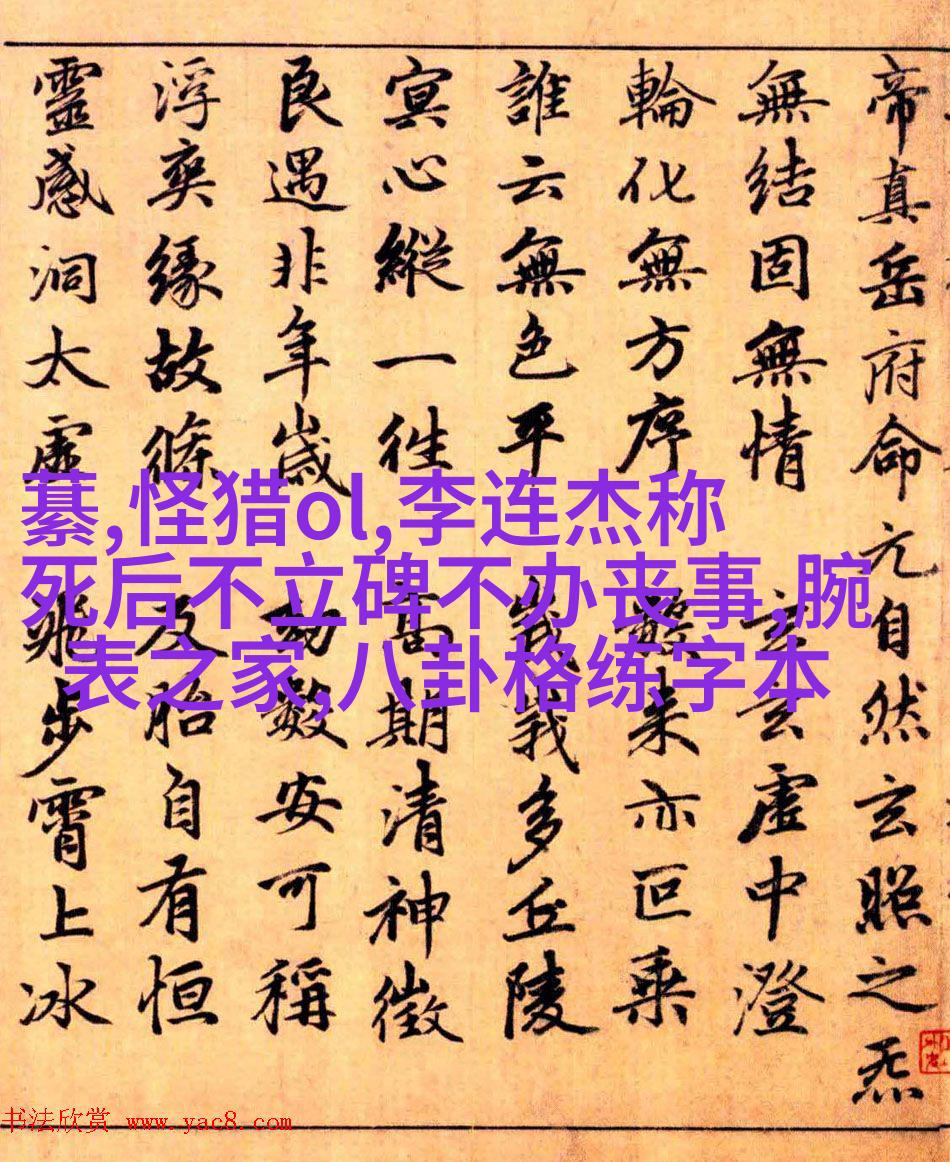 帝真岳府命元自然玄照之炁
無結固無情 玄玄虛中澄
輪化無方序 數來亦叵乘
誰云無色平 峩峩多丘陵
冥心縱一往 高期清神徵
良遇非年歲 劫數安可稱
浮爽緣故條 反胎自有恒
靈感洞太虛 飛步霄上冰
藄,怪猎ol,李连杰称
死后不立碑不办丧事,腕
表之家,八卦格练字本
书法欣赏 www.yac8.com